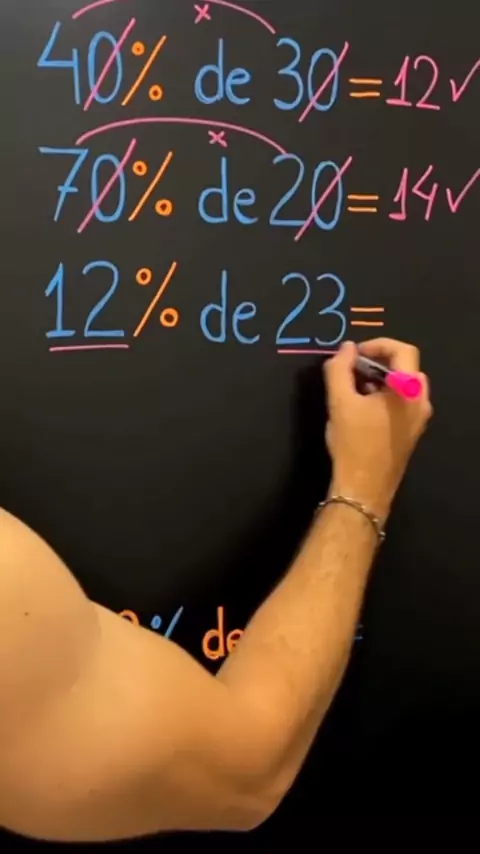 x
40% de 30=12✓
x
70% de 20=14✓
12% de 23=
% de